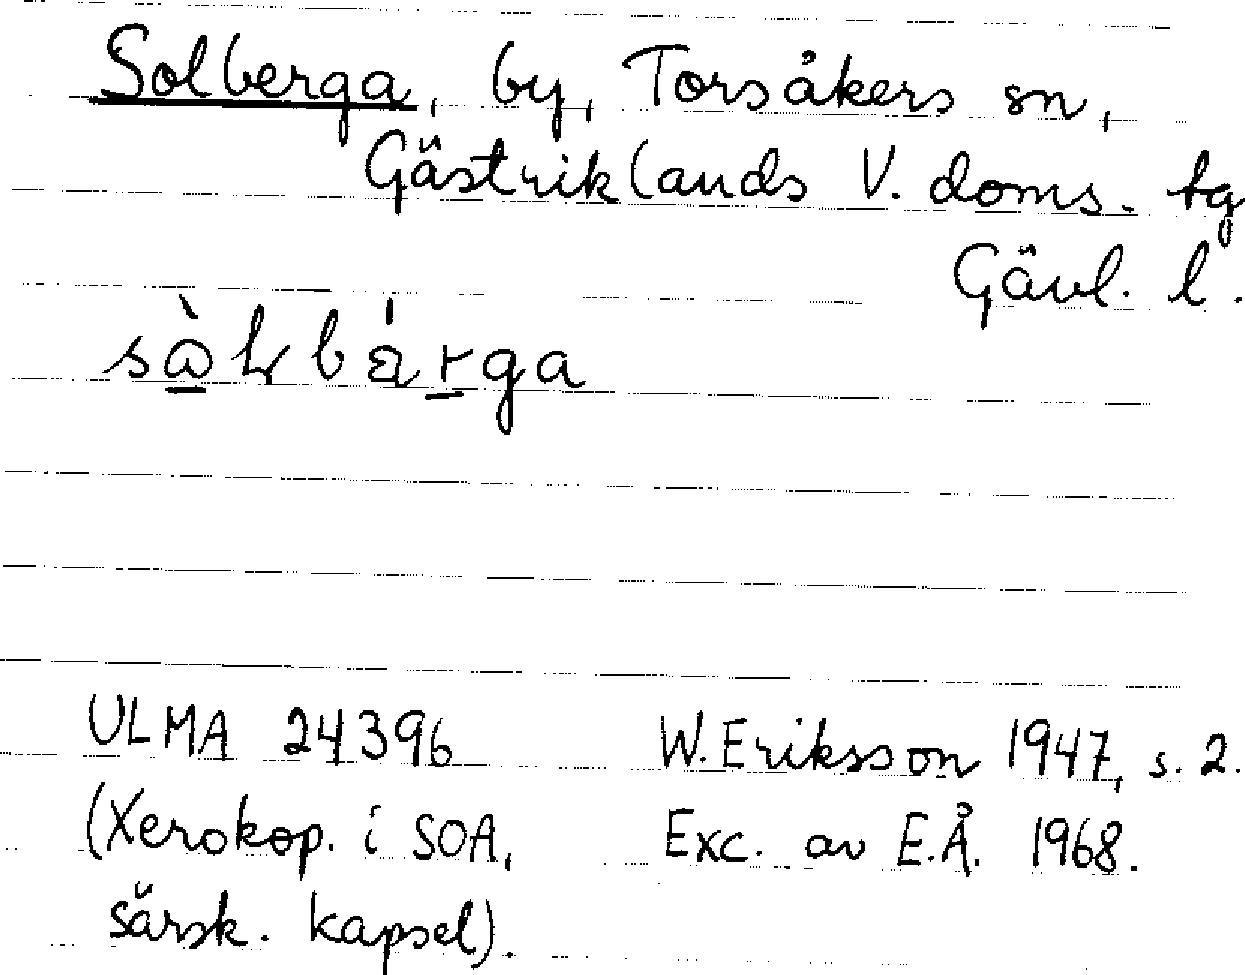 Solberga, by, Torsåkers sn,
Gästriklands V. doms. tg
Gävl. l.
ULMA 24396 W. Eriksson 1947, s. 2.
(Xerokop. i SOA, Exc. av E.Å. 1968.
särsk. kapsel).